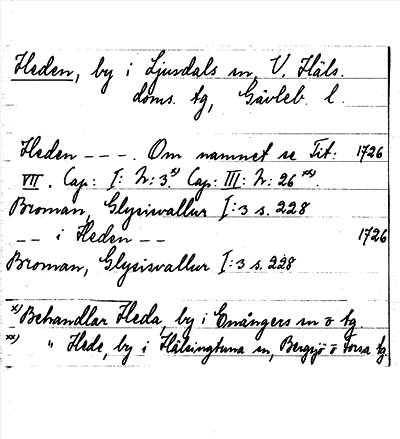 Heden, by i Ljusdals sn, V. Häls.
doms. tg, Gävleb. l.
Heden - - - . Om namnet se Tit: 1726
VII. Cap: I: N: 3.x) Cap: III: N: 26 xx).
Broman, Glysisvallur I:3 s. 228
- - i Heden - - 1726
Broman, Glysisvallur I:3 s. 228
x) Behandlar Heda, by i Enångers sn o tg.
xx) " Hede, by i Hälsingtuna sn, Bergsjö o Forsa tg.